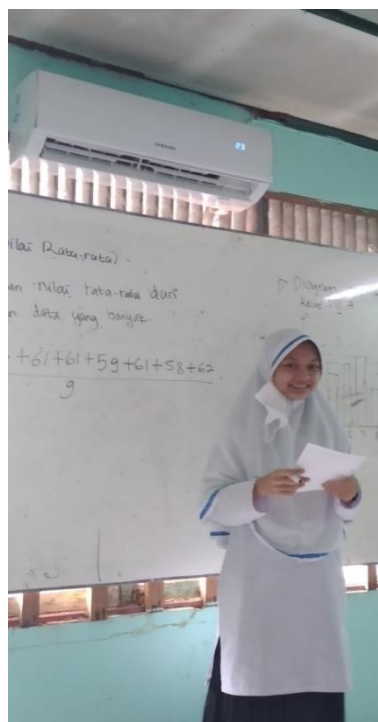 SAMSUNG
23
Nilai Rata-rata).
Nilai rata-rata dari
data yang banyak.
+61+61+59+61+58+62
9
▷ Diagram